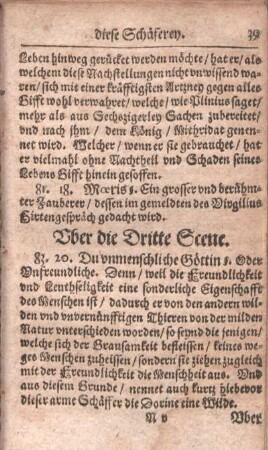 diese Schäferey. 39
Leben hinweg gerücket werden möchte/ hat er/ als
welchem diese Nachstellungen nicht vnwissend wa-
ren/ sich mit einer kräfftigsten Artzney gegen alles
Gifft wohl verwahret/ welche/ wie Plinius saget/
mehr als aus Sechszigerley Sachen zubereitet/
und nach jhm/ dem König/ Mithridat genen-
net wird. Welcher/ wenn er sie gebrauchet/ hat
er vielmahl ohne Nachtheil und Schaden seines
Lebens Gifft hinein gesoffen.
Zr. 18. Mœris s. Ein grosser vnd berühm-
ter Zauberer/ dessen im gemeldten des Virgilius
Hirtengespräch gedacht wird.
Vber die Dritte Scene.
Zr. 20. Du vnmenschliche Göttin s. Oder
Vnfreundliche. Denn/ weil die Freundlichkeit
und Leuthseligkeit eine sonderliche Eigenschafft
des Menschen ist/ dadurch er von den andern wil-
den vnd vnvernünfftigen Thieren von der milden
Natur unterschieden worden/ so seynd die jenigen/
welche sich der Grausamkeit befleissen/ keines we-
ges Menschen zuheissen/ sondern sie ziehen zugleich
mit der Freundlichkeit die Menschheit aus. Und
aus diesem Grunde/ nennet auch kurtz hiebevor
dieser arme Schäffer die Dorine eine Wilde.
N v Vber